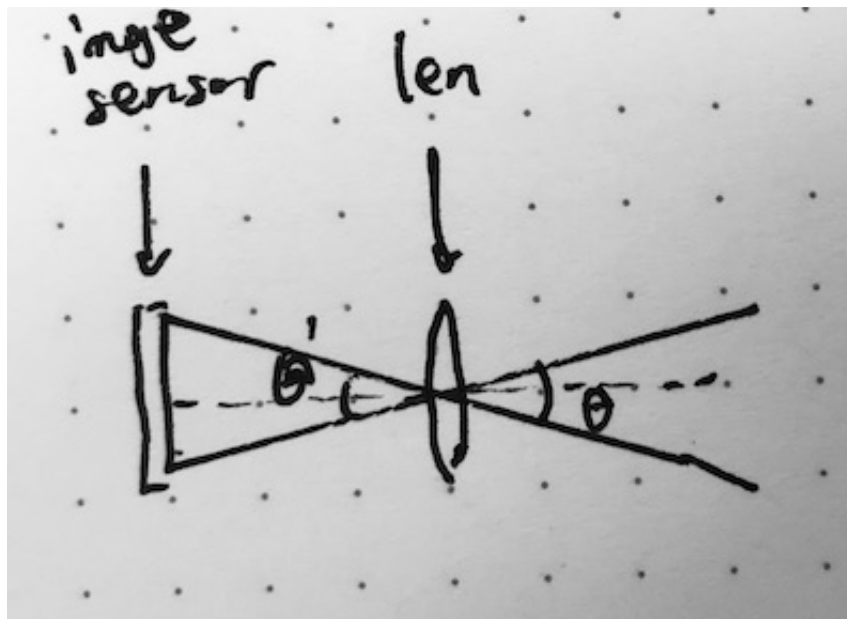 imge
sensor
len
θ'
θ